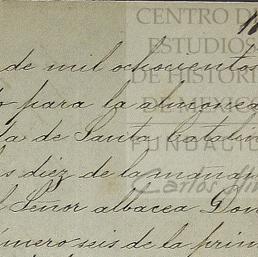 CENTRO DE
ESTUDIOS
DE HISTORI
DE MEXICO
FUNDACIÓ
Carlos Sli
de mil ochocientos
para la almoneda
la de Santa Catalin
diez de la mañan
Señor albacea Don
número seis de la prim